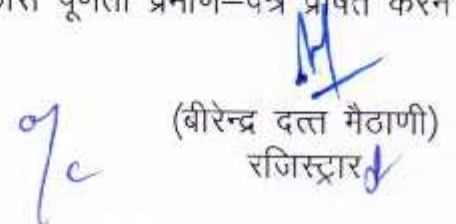 पूर्णता प्रमाण–पत्र प्रेषित करने
o/c
(बीरेन्द्र दत्त मैठाणी)
रजिस्ट्रार